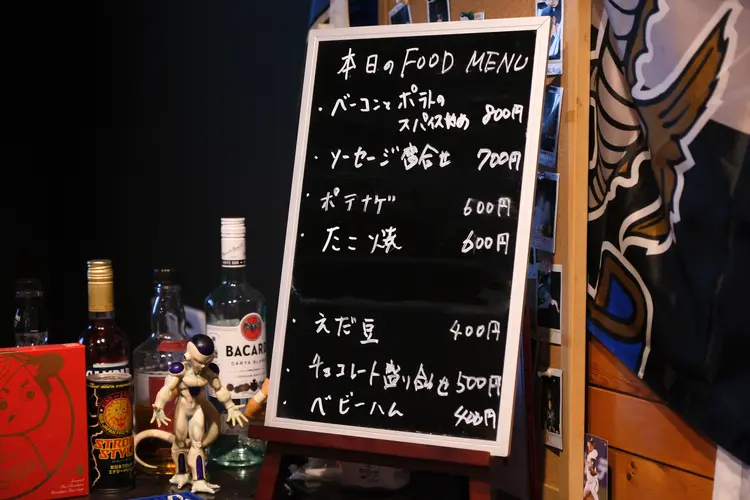 本日のFOOD MENU
・ベーコンとポテトの
スパイス炒め 800円
・ソーセージ盛合せ 700円
・ポテナゲ 600円
・たこ焼 600円
・えだ豆 400円
・チョコレート盛り合わせ 500円
・ベビーハム 400円
BACARDI
CARTA BLANCA
CAMPARI
STRONG
STYLE